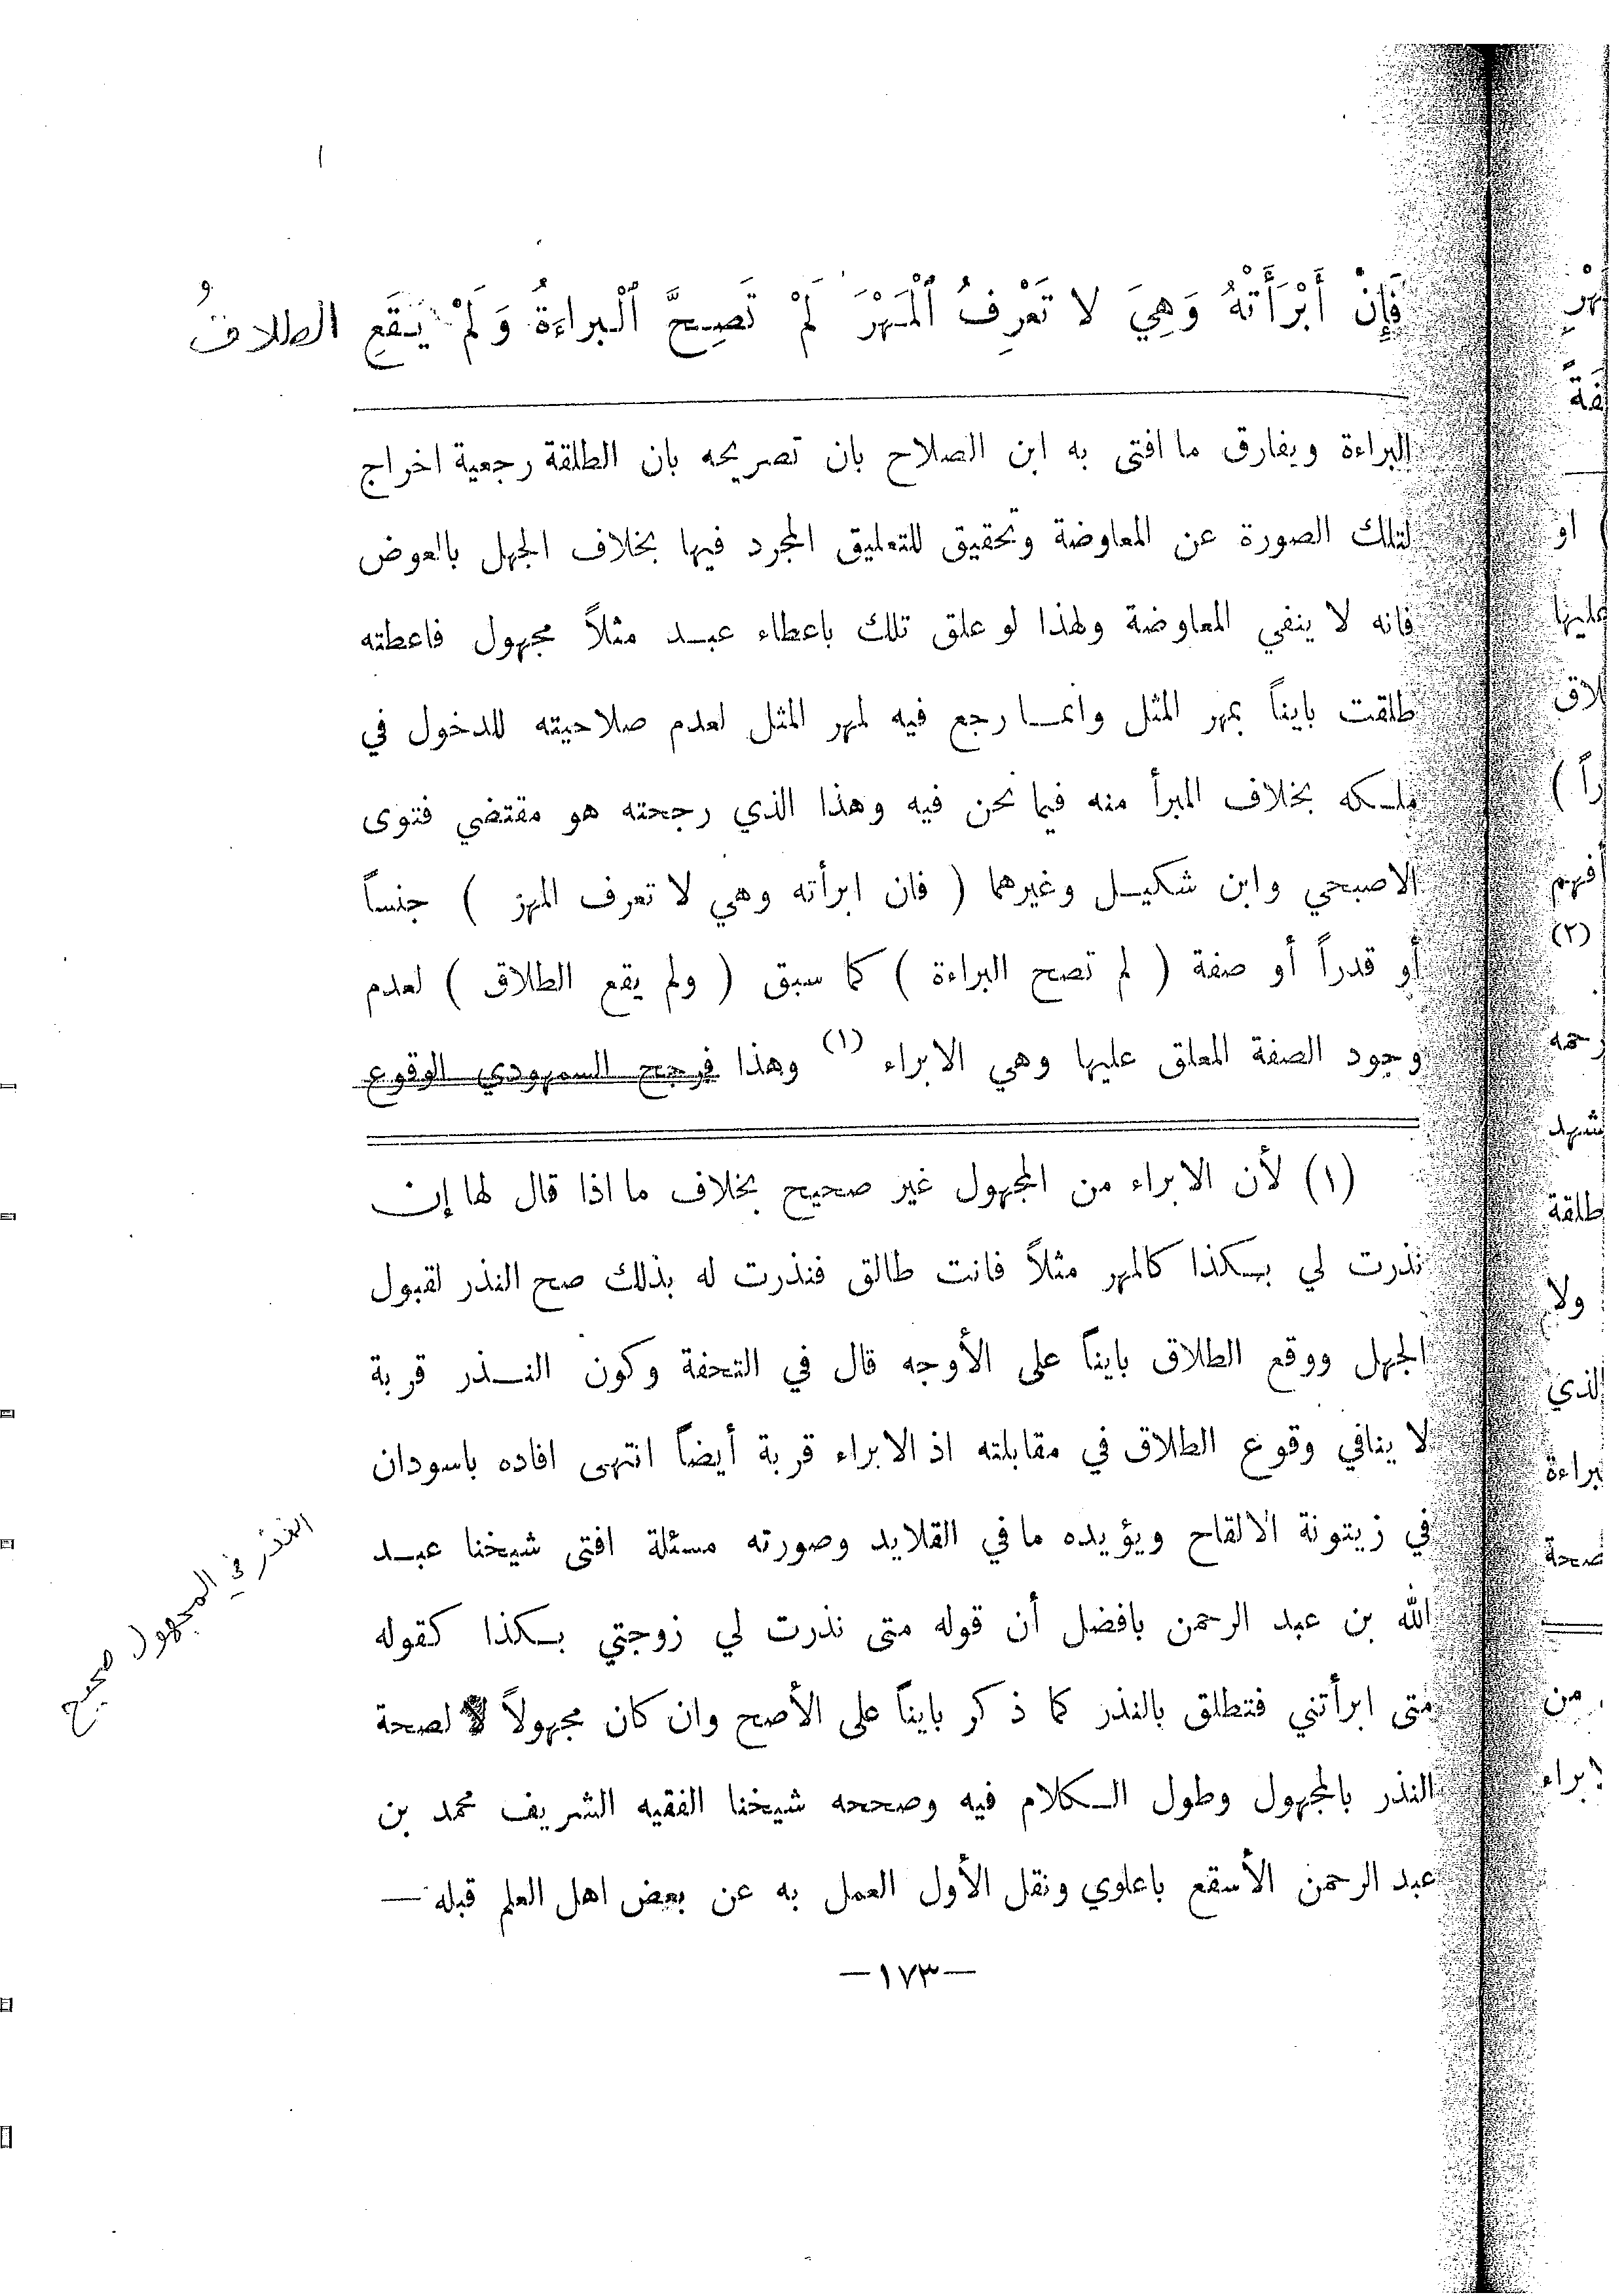 فَإِنْ أَبْرَأَتْهُ وَهِيَ لا تَعْرِفُ ٱلْمَهْرَ لَمْ تَصِحَّ ٱلْبراءةُ وَلَمْ يَقَعِ الطلاقُ
البراءة ويفارق ما افتى به ابن الصلاح بان تصريحه بان الطلقة رجعية اخراج
لتلك الصورة عن المعاوضة وتحقيق للتعليق المجرد فيها بخلاف الجهل بالعوض
فانه لا ينفي المعاوضة ولهذا لو علق تلك باعطاء عبد مثلاً مجهول فاعطته
طلقت بايناً بمهر المثل وانما رجع فيه لمهر المثل لعدم صلاحيته للدخول في
ملكه بخلاف المبرأ منه فيما نحن فيه وهذا الذي رجحته هو مقتضي فتوى
الاصبحي وابن شكيل وغيرهما ( فان ابرأته وهي لا تعرف المهر ) جنساً
أو قدراً أو صفة ( لم تصح البراءة ) كما سبق ( ولم يقع الطلاق ) لعدم
وجود الصفة المعلق عليها وهي الابراء (١) وهذا فرجح السمهودي الوقوع
(١) لأن الابراء من المجهول غير صحيح بخلاف ما اذا قال لها إن
نذرت لي بكذا كالمهر مثلاً فانت طالق فنذرت له بذلك صح النذر لقبول
الجهل ووقع الطلاق بايناً على الأوجه قال في التحفة وكون النذر قربة
لا ينافي وقوع الطلاق في مقابلته اذ الابراء قربة أيضاً انتهى افاده باسودان
في زيتونة الالقاح ويؤيده ما في القلايد وصورته مسئلة افتى شيخنا عبد
الله بن عبد الرحمن بافضل أن قوله متى نذرت لي زوجتي بكذا كقوله
متى ابرأتني فتطلق بالنذر كما ذكر بايناً على الأصح وان كان مجهولاً لصحة
النذر بالمجهول وطول الكلام فيه وصححه شيخنا الفقيه الشريف محمد بن
عبد الرحمن الأسقع باعلوي ونقل الأول العمل به عن بعض اهل العلم قبله —
النذر في المجهول صحيح
—١٧٣—
او
عليها
لاق
راً )
أفهم
(٢)
رحمه
شهد
طلقة
ولا
الذي
براءة
صحة
من
ابراء